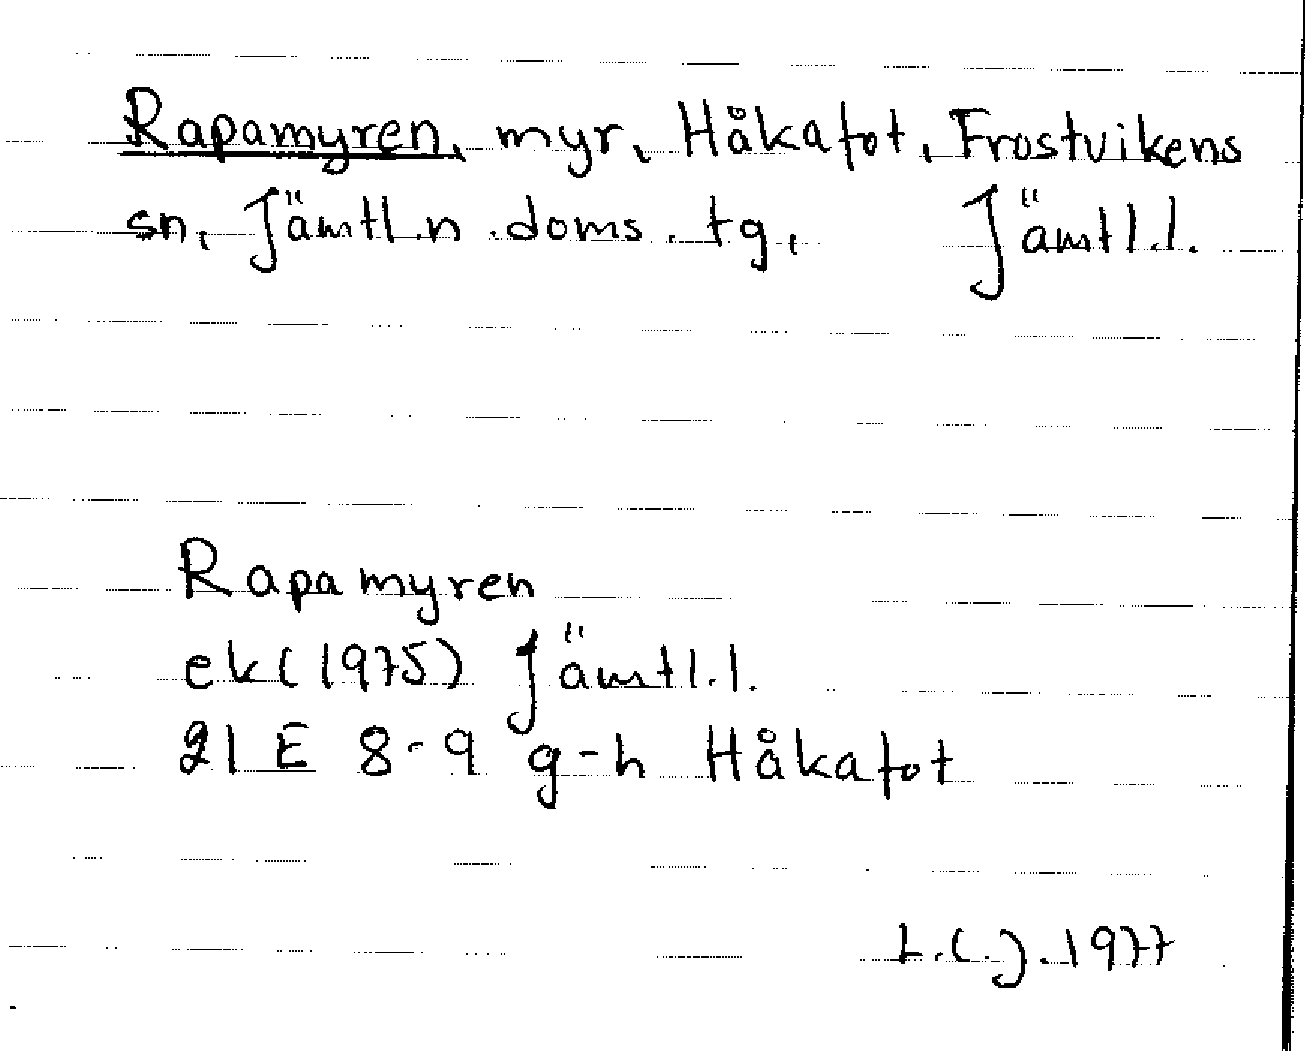 Rapamyren, myr, Håkafot, Frostvikens
sn, Jämtl.n.doms.tg, Jämtl.l.
Rapamyren
ek(1975) Jämtl.l.
21E 8-9 g-h Håkafot
L.C.J.1977